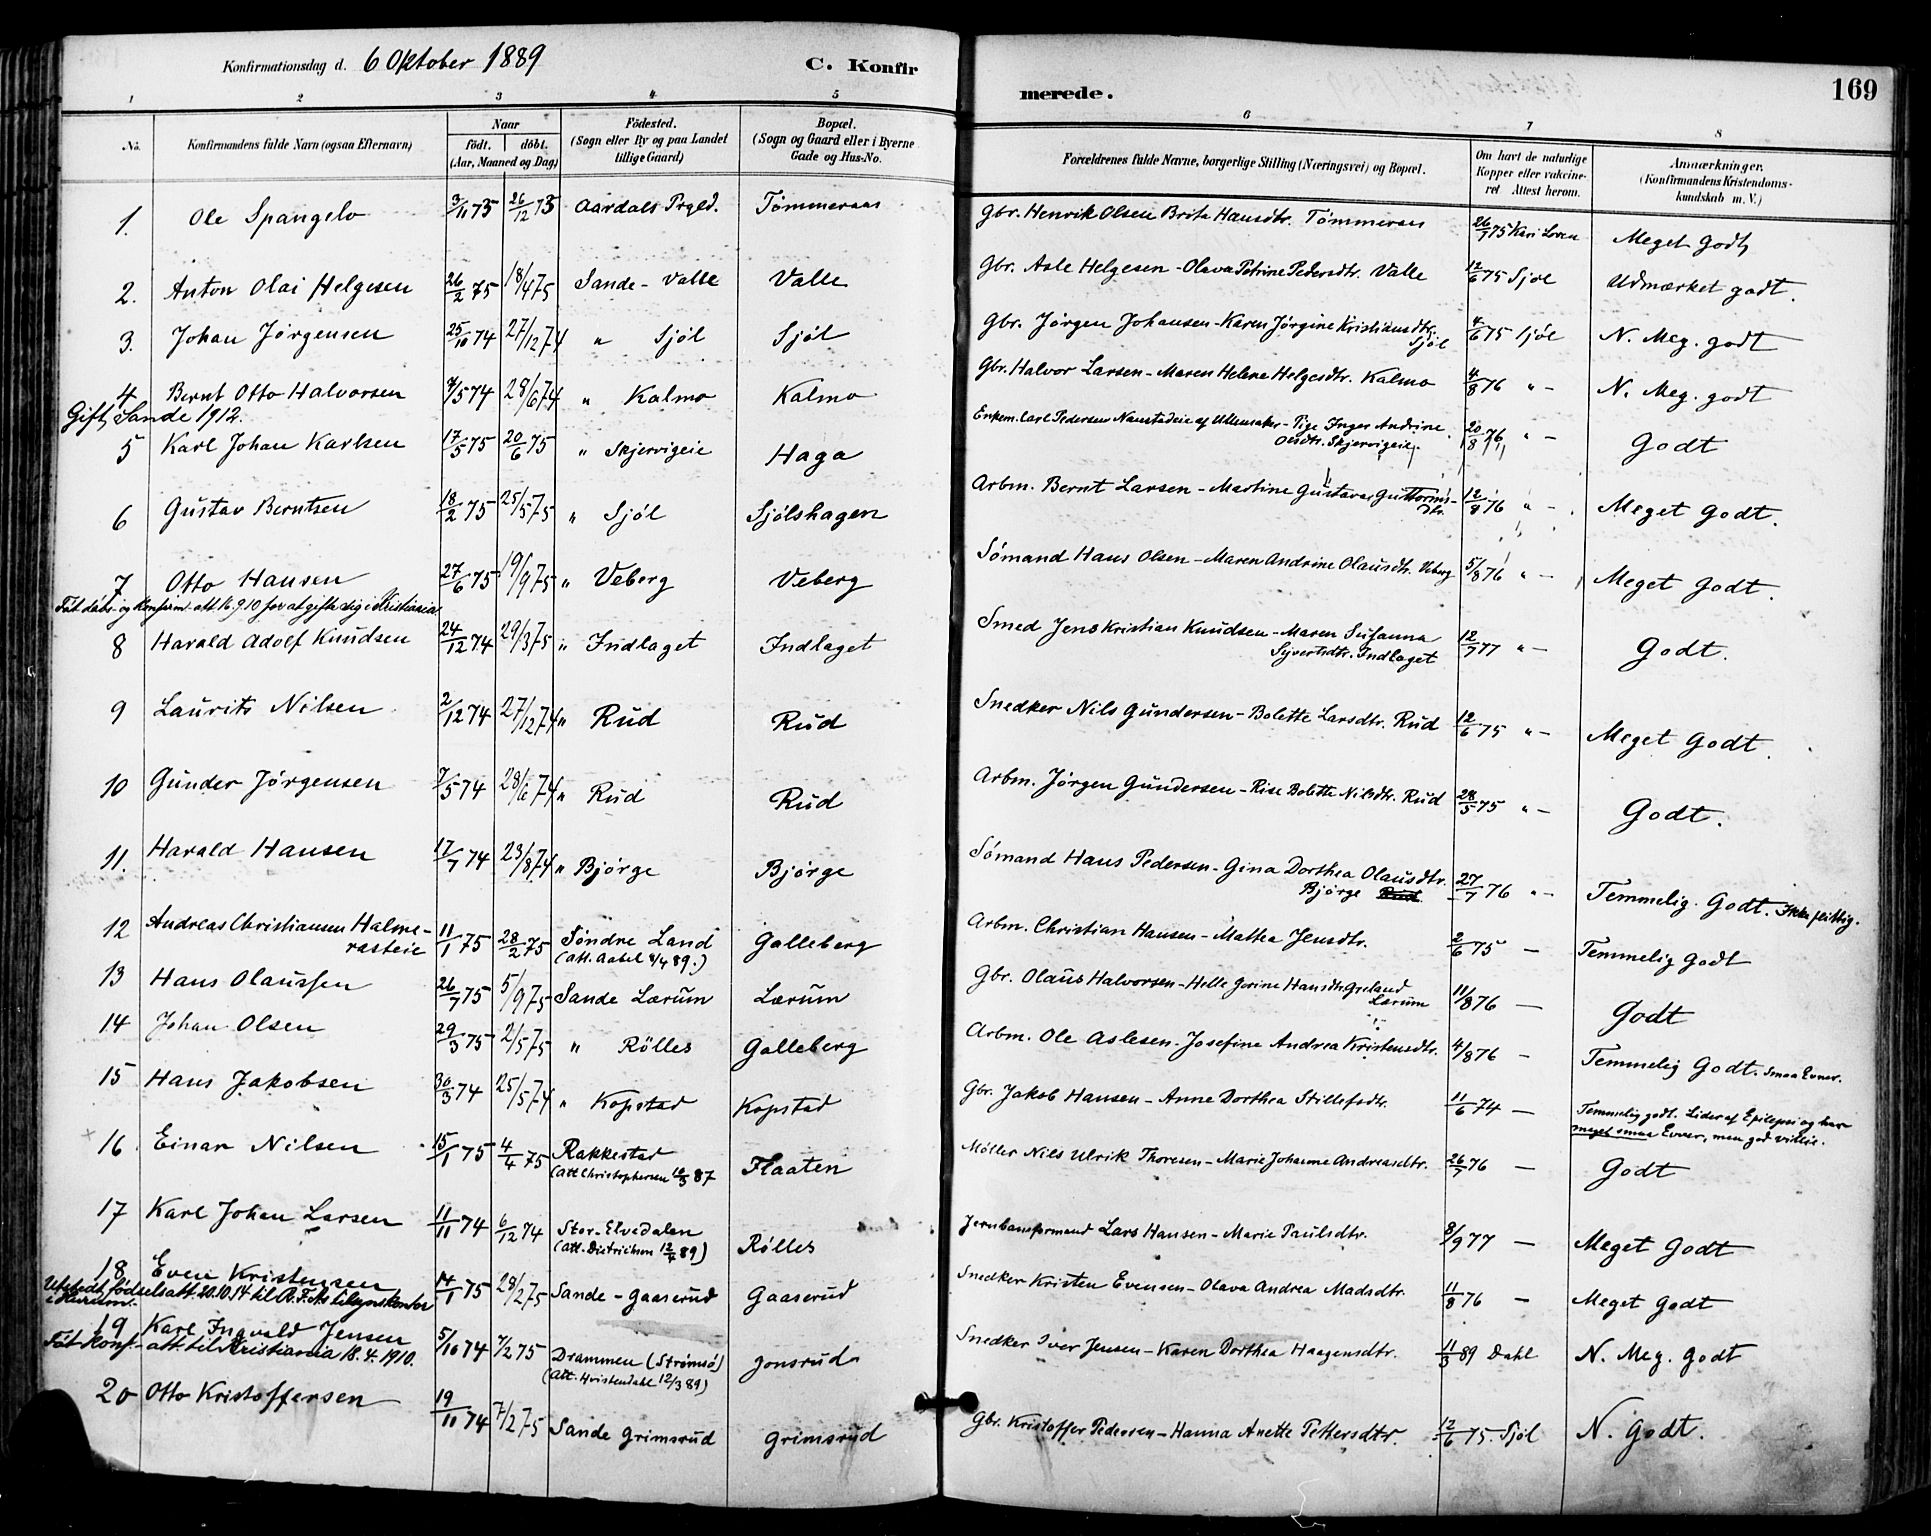 Konfirmationsdag d. 6 Oktober 1889 C. Konfir
merede. 169
1 2 3 4 5 6 7 8
No. Konfirmandens fulde Navn (ogsaa Efternavn) Naar født. døbt. (Aar, Maaned og Dag) Fødested. (Sogn eller By og paa Landet tillige Gaard) Bopæl. (Sogn og Gaard eller i Byerne Gade og Hus-No. Forældrenes fulde Navne, borgerlige Stilling (Næringsvei) og Bopæl. Om havt de naturlige Kopper eller vakcineret Attest herom. Anmærkninger. (Konfirmandens Kristendomskundskab m. V.)
1. Ole Spangelo 3/11 73 26/12 73 Aardals Prgld. Tømmeraas Gbr. Henrik Olsen Brita Hansdtr. Tømmeraas 26/7 75 Kari Loven Meget Godt
2. Anton Olai Helgesen 26/2 75 18/4 75 Sande - Valle Valle Gbr. Asle Helgesen - Olava Petrine Pedersdtr. Valle 12/6 75 Sjøl Udmærket godt.
3. Johan Jørgensen 25/10 74 27/12 74 " Sjøl Sjøl Gbr. Jørgen Johansen - Karen Jørgine Kristiansdtr. Sjøl 4/6 75 Sjøl N. Meg. godt
4 Bernt Otto Halvorsen 7/5 74 28/6 74 " Kalmo Kalmo Gbr. Halvor Larsen - Maren Helene Helgesdtr. Kalmo 4/8 76 " - N. Meg. godt
Gift Sande 1912.
5 Karl Johan Karlsen 17/5 75 20/6 75 " Skjervigeie Haga Enkem. Carl Pedersen Namstadeie af Ullensaker - Pige Inger Andrine Olsdtr. Skjervigeie 20/8 76 " - Godt
6 Gustav Berntsen 18/2 75 25/5 75 " Sjøl Sjølshagen Arbm. Bernt Larsen - Martine Gustava Guttormsdtr. 12/8 76 " - Meget Godt.
7 Otto Hansen 27/6 75 19/9 75 " Veberg Veberg Sømand Hans Olsen - Maren Andrine Olausdtr. Veberg 5/8 76 " - Meget Godt.
Fåt dåbs- og konfirm.-att. 16.9.10 for at gifte sig i Kristiania
8 Harald Adolf Knudsen 24/12 74 29/3 75 " Indlaget Indlaget Smed Jens Kristian Knudsen - Maren Susanna Syvertsdtr. Indlaget 12/7 77 " - Godt.
9 Laurits Nilsen 2/12 74 27/12 74 " Rud Rud Snedker Nils Gundersen - Bolette Larsdtr. Rud 12/6 75 " - Meget Godt.
10 Gunder Jørgensen 7/5 74 28/6 74 " Rud Rud Arbm. Jørgen Gundersen - Rise Bolette Nilsdtr. Rud 28/5 75 " - Godt.
11. Harald Hansen 17/7 74 23/8 74 " Bjørge Bjørge Sømand Hans Pedersen - Gina Dorthea Olausdtr. Bjørge 27/7 76 " - Temmelig Godt. Ikke flittig.
12 Andreas Christiansen Halmerasteie 11/1 75 28/2 75 Søndre Land (att. Aabel 8/4 89.) Galleberg Arbm. Christian Hansen - Mathea Jensdtr. 2/6 75 - Temmelig Godt
13 Hans Olaussen 26/7 75 5/9 75 Sande Lærum Lærum Gbr. Olaus Halvorsen - Helle Gorine Hansdtr. Grelland Lærum 11/8 76 - Godt
14 Johan Olsen 29/3 75 2/5 75 " Rølles Galleberg Arbm. Ole Aslesen - Josefine Andrea Kristensdtr. 4/8 76 - Temmelig Godt. Smaa Evner.
15 Hans Jakobsen 30/3 74 25/5 74 " Kopstad Kopstad Gbr. Jakob Hansen - Anne Dorthea Stillefsdtr. 11/6 74 - Temmelig godt. Lider af Epilepsi og har meget smaa Evner, men god villie.
16 Einar Nilsen 15/1 75 4/4 75 Rakkestad (att Christophersen 10/3 87 Flaaten Møller Nils Ulrik Thoresen - Marie Johanne Andreasdtr. 26/7 76 - Godt
17 Karl Johan Larsen 11/11 74 6/12 74 Stor-Elvedalen (att. Dietrichson 12/4 89) Rølles Jernbaneformand Lars Hansen - Marie Paulsdtr. 8/9 77 - Meget Godt
18 Even Kristensen 14/1 75 28/2 75 Sande - Gaaserud Gaaserud Snedker Kristen Evensen - Olava Andrea Madsdtr. 11/8 76 - Meget Godt
Utstedt fødselsatt. 20.10.14 til R.F.A's tilsynskontor i Hurum.
19 Karl Ingvald Jensen 5/10 74 7/2 75 Drammen (Strømsø) (Att. Hvistendahl 12/3 89) Jonsrud Snedker Iver Jensen - Karen Dorthea Haagensdtr. 11/3 89 Dahl N. Meg. Godt
Fåt konf.-att. til Kristiania 18.4.1910.
20 Otto Kristoffersen 19/11 74 7/2 75 Sande Grimsrud Grimsrud Gbr. Kristoffer Pedersen - Hanna Anette Pettersdtr. 12/6 75. Sjøl N. Godt.